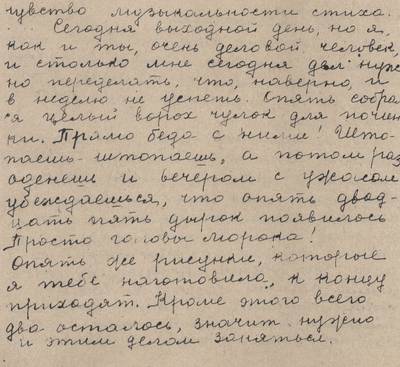 чувство музыкальности стиха.
Сегодня выходной день, но я,
как и ты, очень деловой человек,
и столько мне сегодня дел нуж-
но переделать, что, наверно, и
в неделю не успеть. Опять собрал-
ся целый ворох чулок для почин-
ки. Прямо беда с ними! Што-
паешь-штопаешь, а потом раз
оденешь и вечером с ужасом
убеждаешься, что опять двад-
цать пять дырок появилось
Просто головы морока!
Опять же рисунки, которые
я тебе наготовила, к концу
приходят. Кроме этого всего
два осталось, значит нужно
и этим делом заняться.